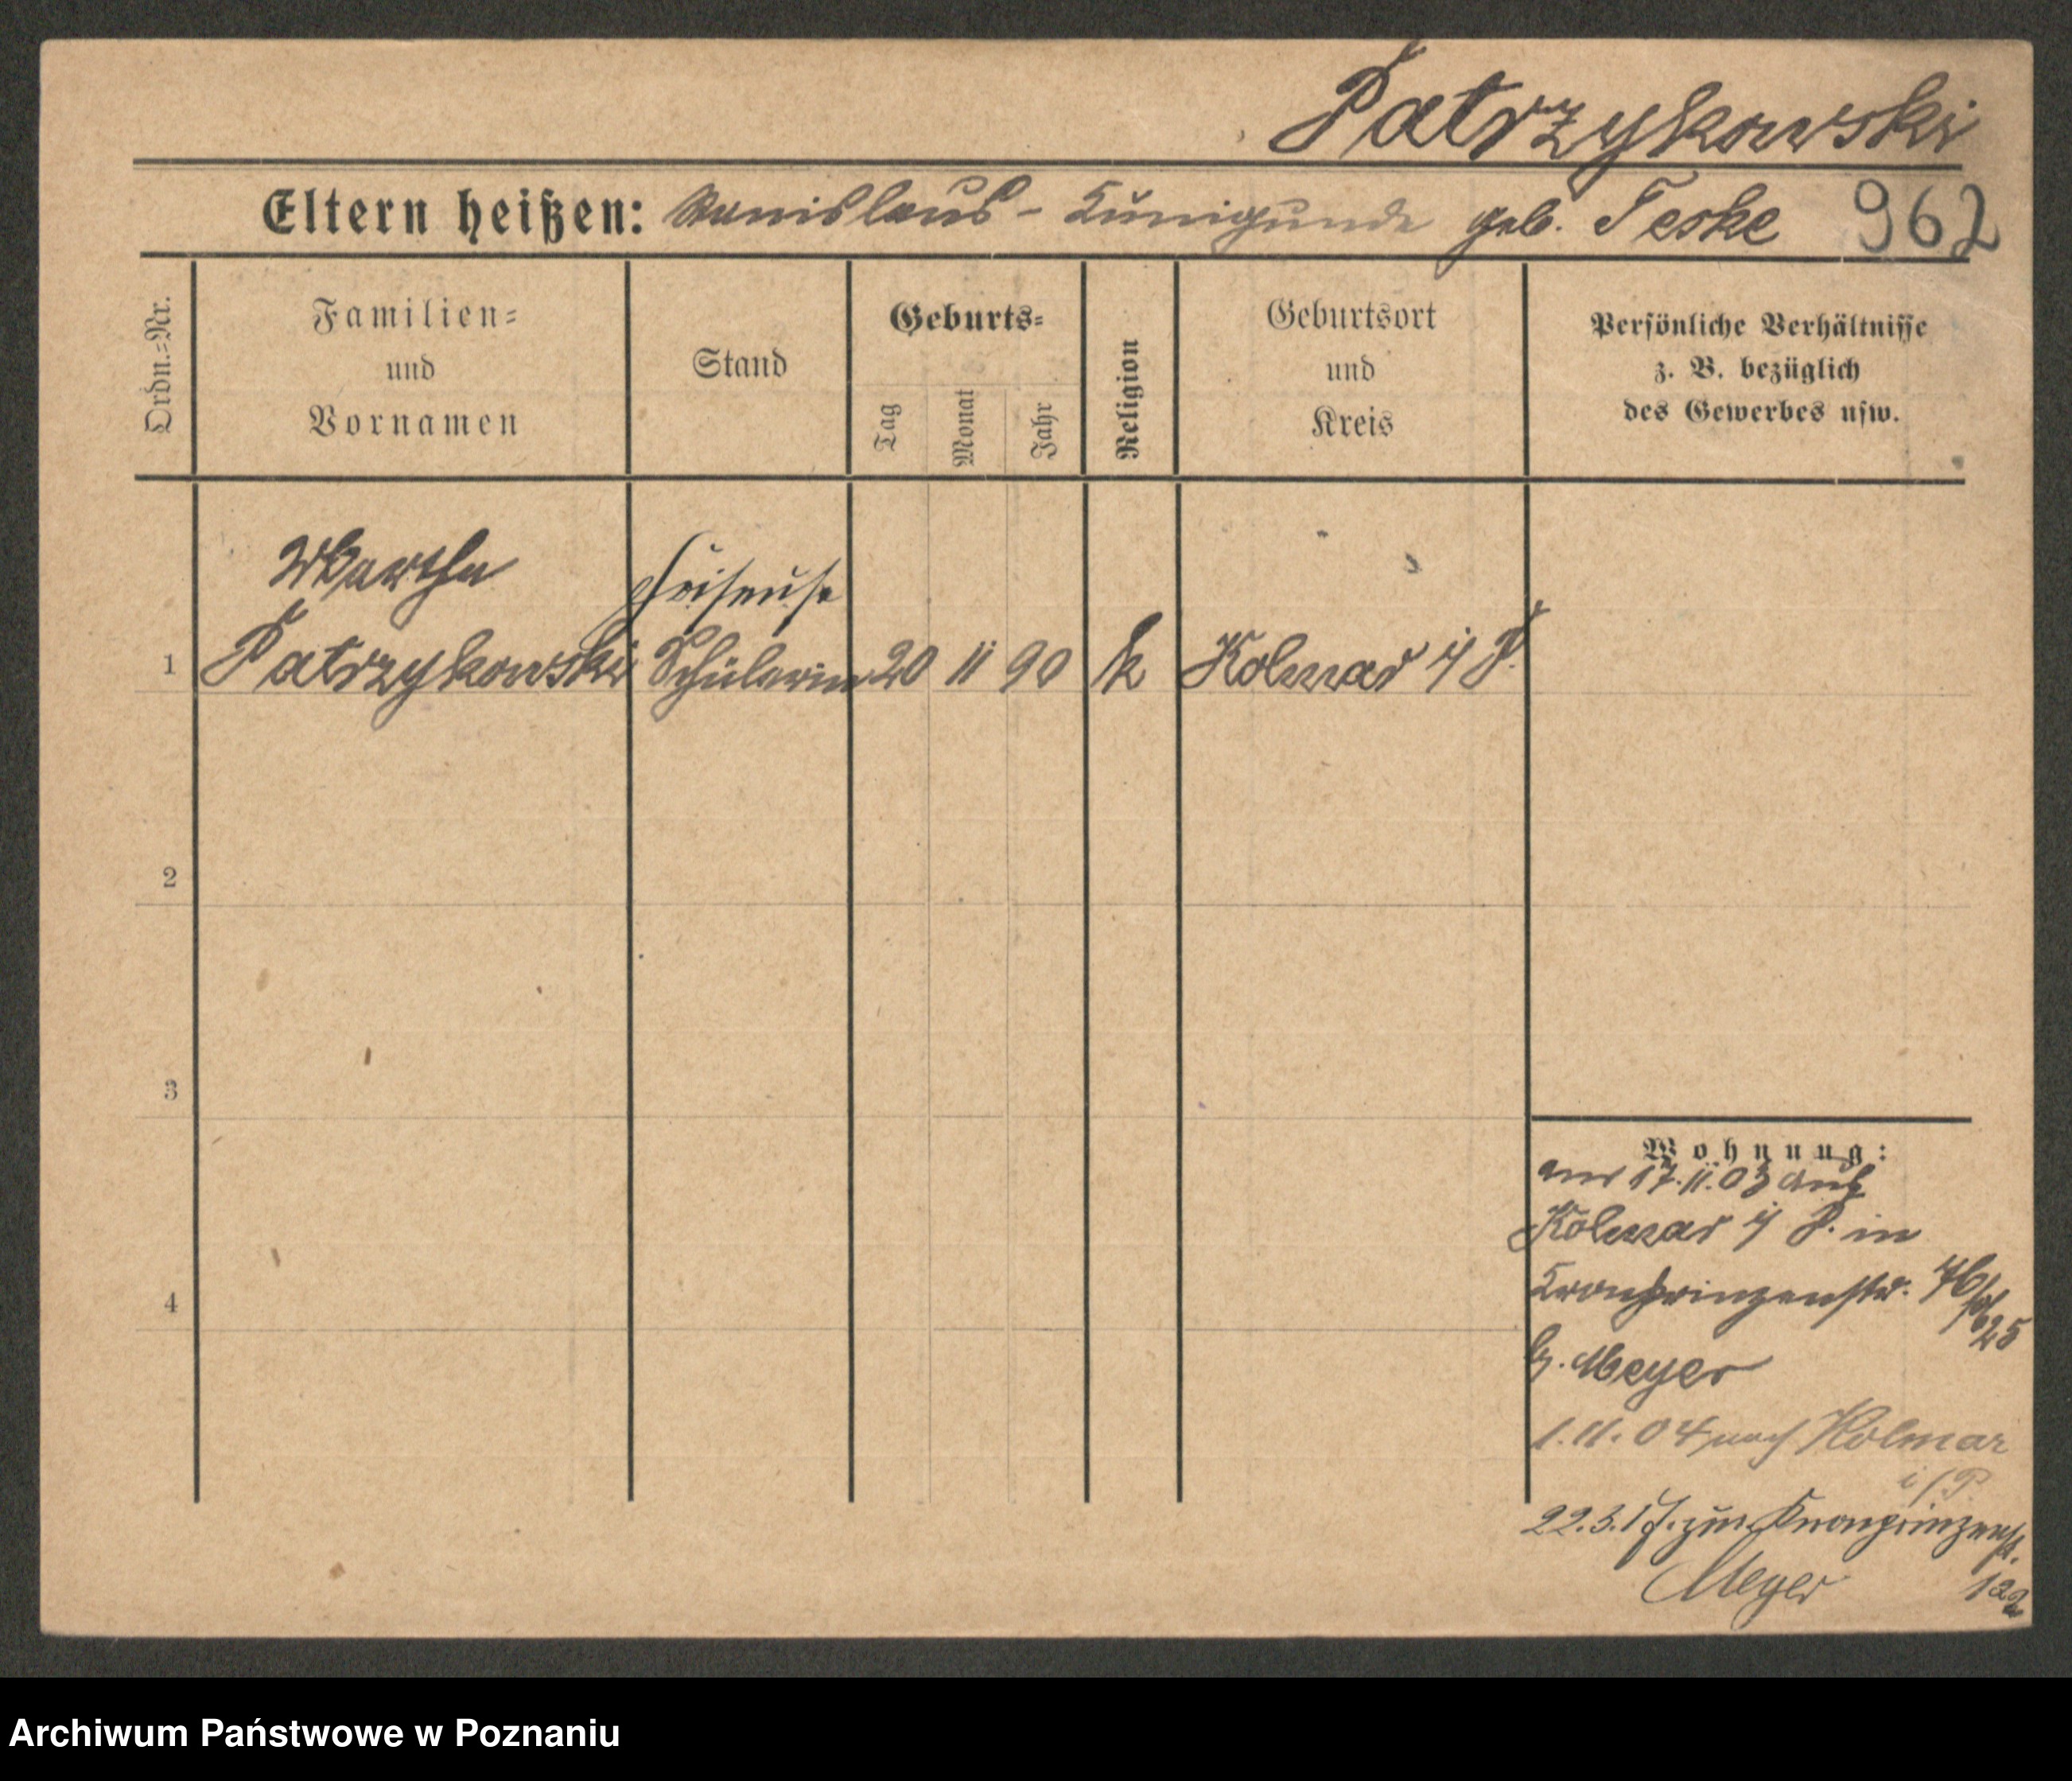 Patrzykowski
Eltern heißen: Stanislaus - Kunigunde geb. Teske 962
Ordn.=Nr.
Familien=
und
Vornamen
Stand
Geburts=
Tag
Monat
Jahr
Religion
Geburtsort
und
Kreis
Persönliche Verhältnisse
z. B. bezüglich
des Gewerbes usw.
Martha
Friseuse
1 Patrzykowski Schülerin 20 11 90 k Kolmar i/ P.
2
3
4
Wohnung:
am 17.11.03 aus
Kolmar i/ P. in
Kronprinzenstr.
b. Meyer
1.11.04 nach Kolmar
i/P
22.3.17. zur. Kronprinzenst.
Meyer
Archiwum Państwowe w Poznaniu